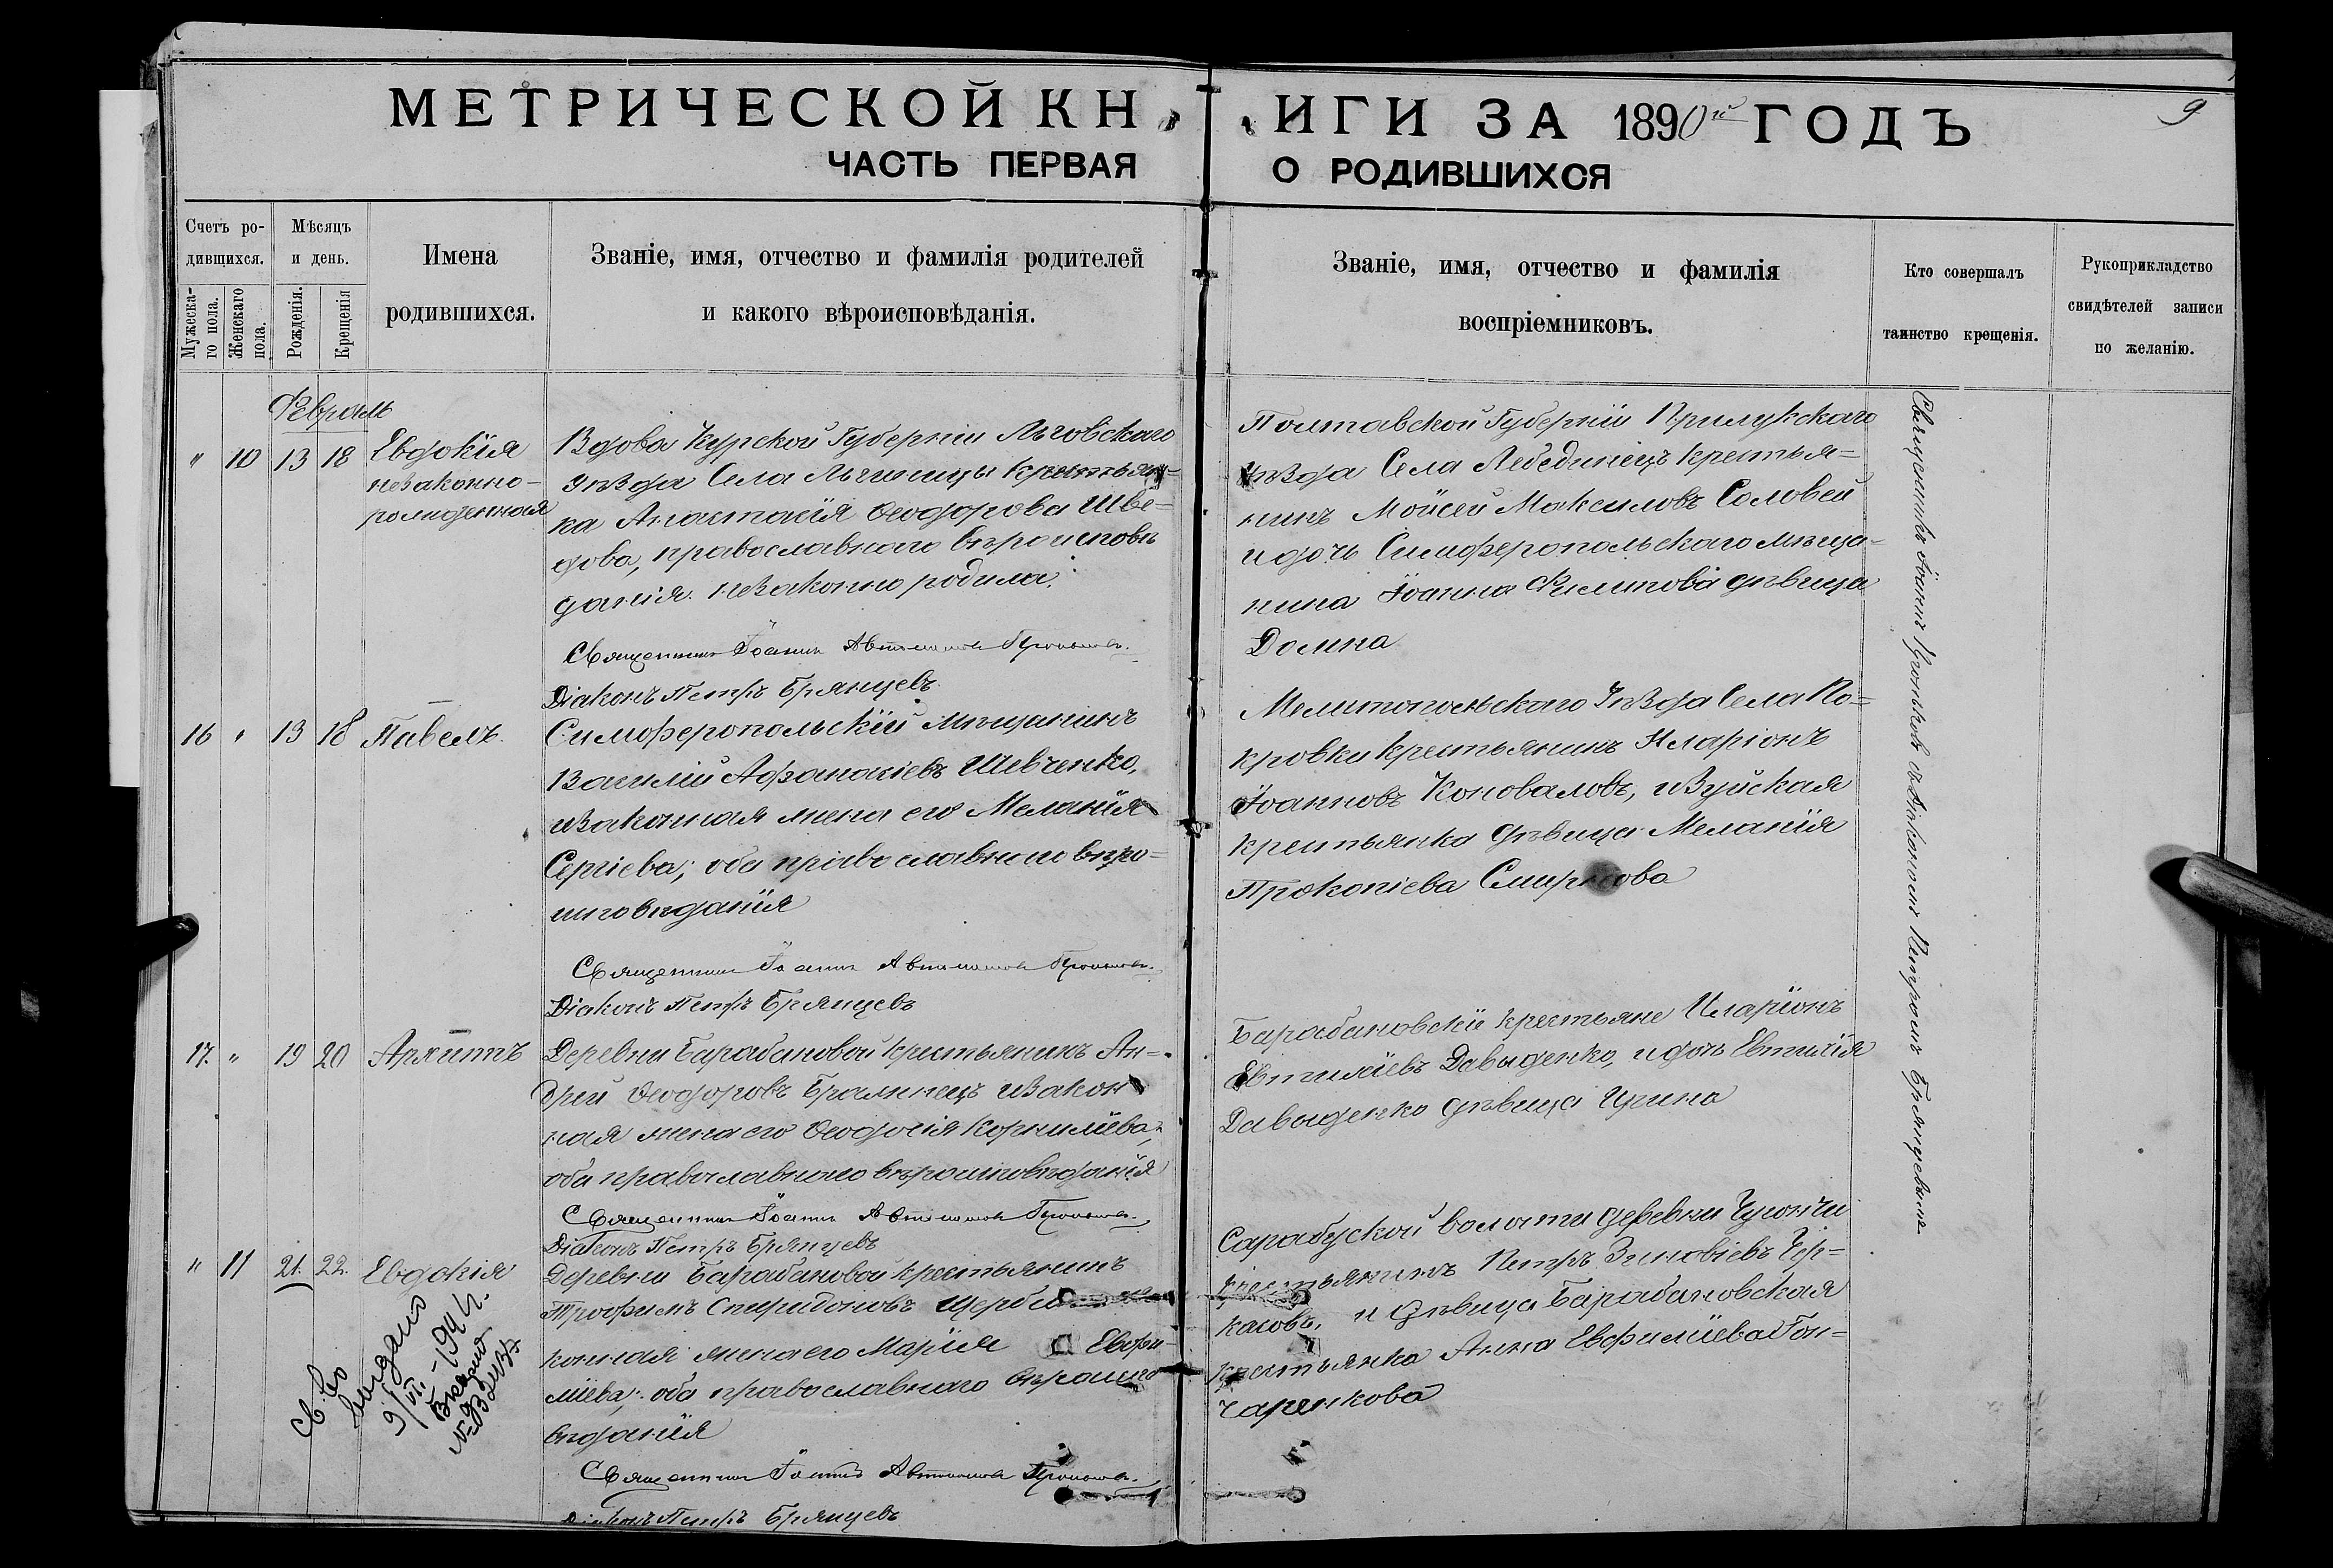 МЕТРИЧЕСКОЙ КНИГИ ЗА 1890й ГОДЪ
9
ЧАСТЬ ПЕРВАЯ О РОДИВШИХСЯ
Счетъ родившихся.
Мужескаго пола.
Женскаго пола.
Мѣсяцъ и день.
Рожденія.
Крещенія
Имена
родившихся.
Званіе, имя, отчество и фамилія родителей
и какого вѣроисповѣданія.
Званіе, имя, отчество и фамилія
воспріемниковъ.
Кто совершалъ
таинство крещенія.
Рукоприкладство
свидѣтелей записи
по желанію.
Февраль
" 10 13 18 Евдокія
незаконно-
рожденная
Вдова Курской Губерніи Льговскаго
Уѣзда Села крестьян-
ка Анастасія Ѳеодорова Шве-
дова, православнаго вѣроисповѣ
данія. незаконно родила.
Священникъ Іоаннъ
Діаконъ Петръ Брянцевъ
Полтавской Губерніи Прилукскаго
Уѣзда Села Лебединецъ крестья-
нинъ Моисей Максимовъ Соловей
и дочь Симферопольскаго мѣща-
нина Іоанна Филипова дѣвица
Домна
16 " 13 18 Павелъ.
Симферопольскій Мѣщанинъ
Василій Афанасіевъ Шевченко,
и законная жена его Меланія
Сергіева; оба православнаго вѣро-
исповѣданія
Священникъ Іоаннъ
Діаконъ Петръ Брянцевъ
Мелитопольскаго Уѣзда Села По-
кровки крестьянинъ Иларіонъ
Іоанновъ Коноваловъ, и Зуйская
крестьянка дѣвица Меланія
Прокопіева Смирнова
17. " 19 20
Деревни Барабановой крестьянинъ Ан-
дрей Ѳеодоровъ и закон
ная жена его Ѳеодосія Корниліева,
оба православнаго вѣроисповѣданія
Священникъ Іоаннъ
Діаконъ Петръ Брянцевъ
Барабановскіе крестьяне Иларіонъ
Давыденко, и дочь
Давыденко дѣвица Ирина
" 11 21. 22. Евдокія
Деревни Барабановой крестьянинъ
Трофимъ Спиридоновъ
конная жена его Марія Евфи-
міева; оба православнаго вѣроиспо
вѣданія
Священникъ Іоаннъ
Діаконъ Петръ Брянцевъ
Сарабузской волости деревни
крестьянинъ Петръ Зиновіевъ Чер-
касовъ, и дѣвица Барабановская
крестьянка Анна Евфиміева Гон-
чаренкова
Священникъ Іоаннъ съ Діакономъ Петромъ Брянцевымъ
Св. во
выдано